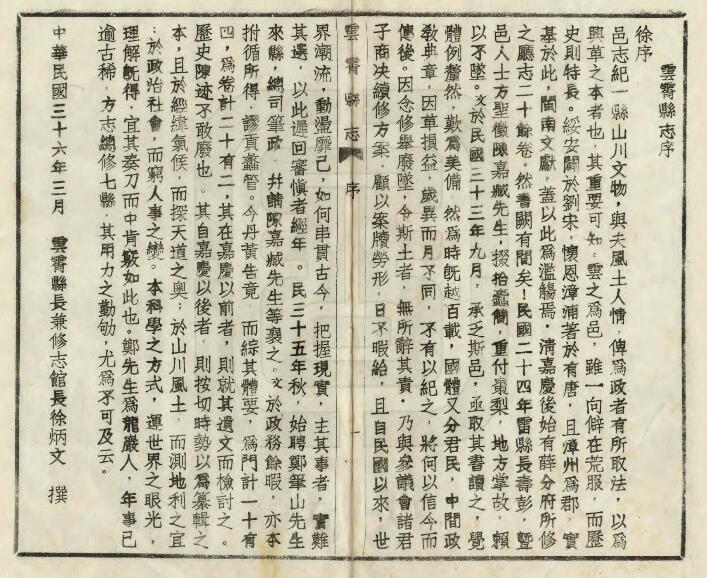 雲霄縣志序
徐序
邑志紀一縣山川文物,與夫風土人情,俾為政者有所取法,以為
興革之本者也,其重要可知。雲之為邑,雖一向僻在荒服,而歷
史則特長。綏安闢於劉宋,懷恩漳浦著於有唐,且漳州為郡,實
基於此,閩南文獻,蓋以此為濫觴焉。清嘉慶後始有薛分府所修
之廳志二十餘卷。然書闕有間矣!民國二十四年雷縣長壽彭,暨
邑人士方聖徵陳嘉臧先生,掇拾蠹簡,重付棗梨,地方掌故,賴
以不墜。文於民國三十三年九月,承乏斯邑,亟取其書讀之,覺
體例釐然,歎為美備,然為時旣越百載,國體又分君民,中間政
敎典章,因革損益,歲異而月不同,不有以紀之,將何以信今而
傳後。因念修舉廢墜,令斯土者,無所辭其責。乃與參議會諸君
子商決續修方案,顧以案牘勞形,日不暇給,且自民國以來,世
雲霄縣志 序 一
界潮流,動盪靡已,如何串貫古今,把握現實,主其事者,實難
其選,以此遲回審愼者經年。民三十五年秋,始聘鄭筆山先生
來縣,總司筆政,幷請陳嘉臧先生等襄之。文於政務餘暇,亦本
拊循所得,謬貢蠡管。今丹黃告竟,而綜其體要,為門計一十有
四,為卷計二十有二,其在嘉慶以前者,則就其遺文而檢討之。
歷史陳迹不敢廢也。其自嘉慶以後者,則按切時勢以為纂輯之
本,且於經緯氣候,而探天道之奧;於山川風土,而測地利之宜
;於政治社會,而窮人事之變。本科學之方式,運世界之眼光,
理解旣得,宜其奏刀而中肯綮如此也。鄭先生為龍巖人,年事已
逾古稀,方志總修七縣,其用力之勤劬,尤為不可及云。
中華民國三十六年三月 雲霄縣長兼修志館長徐炳文 撰